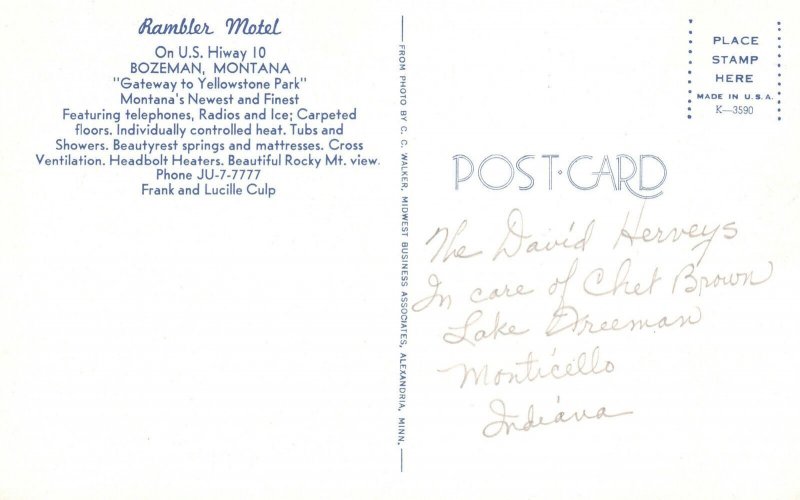 Rambler Motel
On U.S. Hiway 10
BOZEMAN, MONTANA
"Gateway to Yellowstone Park"
Montana's Newest and Finest
Featuring telephones, Radios and Ice; Carpeted
floors. Individually controlled heat. Tubs and
Showers. Beautyrest springs and mattresses. Cross
Ventilation. Headbolt Heaters. Beautiful Rocky Mt. view.
Phone JU-7-7777
Frank and Lucille Culp
FROM PHOTO BY C. C. WALKER, MIDWEST BUSINESS ASSOCIATES, ALEXANDRIA, MINN.
PLACE
STAMP
HERE
MADE IN U.S.A.
K—3590
POST·CARD
The David Herveys
In care of Chet Brown
Lake Freeman
Monticello
Indiana